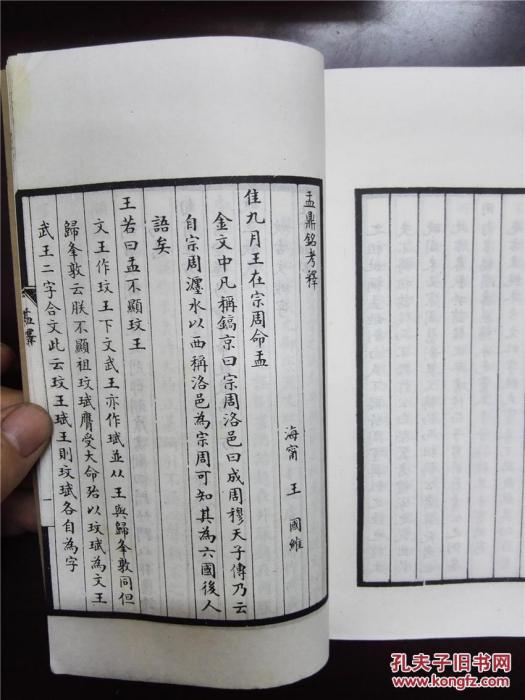 盂鼎銘考釋
海甯 王 國維
隹九月王在宗周命盂
金文中凡稱鎬京曰宗周洛邑曰成周穆天子傳乃云
自宗周瀍水以西稱洛邑為宗周可知其為六國後人
語矣
王若曰盂不顯玟王
文王作玟王下文武王亦作珷並从王與歸夆敦同但
歸夆敦云朕不顯祖玟珷膺受大命殆以玟珷為文王
武王二字合文此云玟王珷王則玟珷各自為字
一
孔夫子旧书网
www.kongfz.com